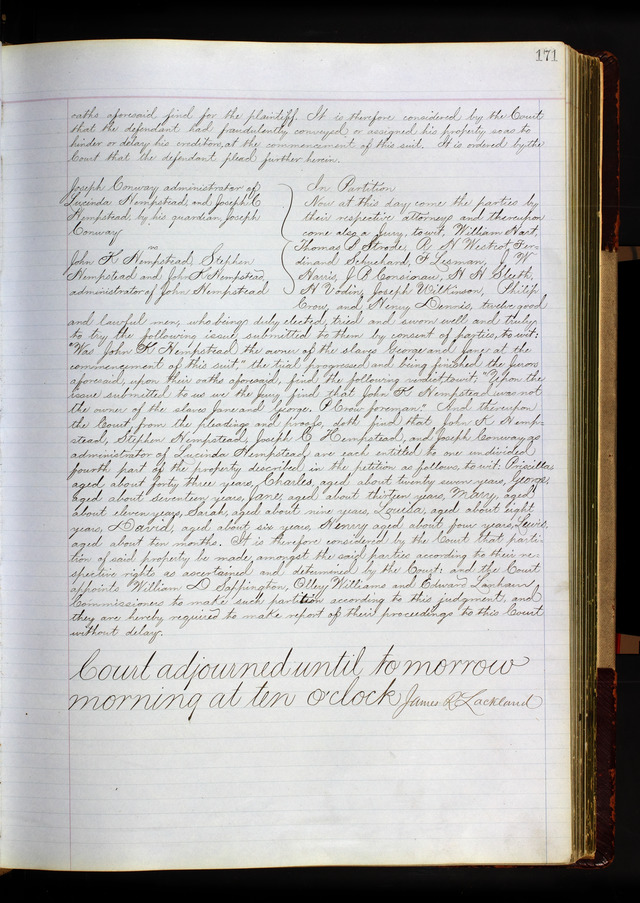 171
oaths aforesaid find for the plaintiff. It is therefore considered by the Court
that the defendant had fraudulently conveyed or assigned his property so as to
hinder or delay his creditors, at the commencement of this suit. It is ordered by the
Court that the defendant plead further herein.
Joseph Conway administrator of
Lucinda Hempstead, and Joseph C
Hempstead, by his guardian, Joseph
Conway
vs
John K Hempstead, Stephen
Hempstead and John K Hempstead,
administrator of John Hempstead
In Partition
Now at this day come the parties by
their respective attorneys and thereupon
come also a jury, to wit, William Hart,
Thomas P Strode, R H Westcot, Fer-
dinand Schuchard, F Lesman, J W
Harris, J P Consignau, H H Sleeth,
H Vodin, Joseph Wilkinson, Philip
Crow and Henry Dennis, twelve good
and lawful men, who being duly elected, tried and sworn well and truly
to try the following issue submitted to them by consent of parties, to wit:
"Was John K Hempstead the owner of the slaves George and Jane at the
commencement of this suit." the trial progressed and being finished the Jurors
aforesaid, upon their oaths aforesaid, find the following verdict, to wit: "Upon the
issue submitted to us we the Jury find that John K Hempstead was not
the owner of the slaves Jane and George. P Crow foreman". And thereupon
the Court, from the pleadings and proofs, doth find that John K Hemp-
stead, Stephen Hempstead, Joseph C Hempstead, and Joseph Conway as
administrator of Lucinda Hempstead, are each entitled to one undivided
fourth part of the property described in the petition as follows, to wit: Priscilla,
aged about forty three years, Charles, aged about twenty seven years, George,
aged about seventeen years, Jane, aged about thirteen years, Mary, aged
about eleven years, Sarah, aged about nine years, Louisa, aged about eight
years, David, aged about six years, Henry aged about four years, Lewis,
aged about ten months. It is therefore considered by the Court that parti-
tion of said property be made, amongst the said parties according to their re-
spective rights as ascertained and determined by the Court: and the Court
appoints William D Sappington, Olley Williams and Edward Lanham
Commissioners to make such partition according to this judgment, and
they are hereby required to make report of their proceedings to this Court
without delay.
Court adjourned until to morrow
morning at ten o'clock James R Lackland